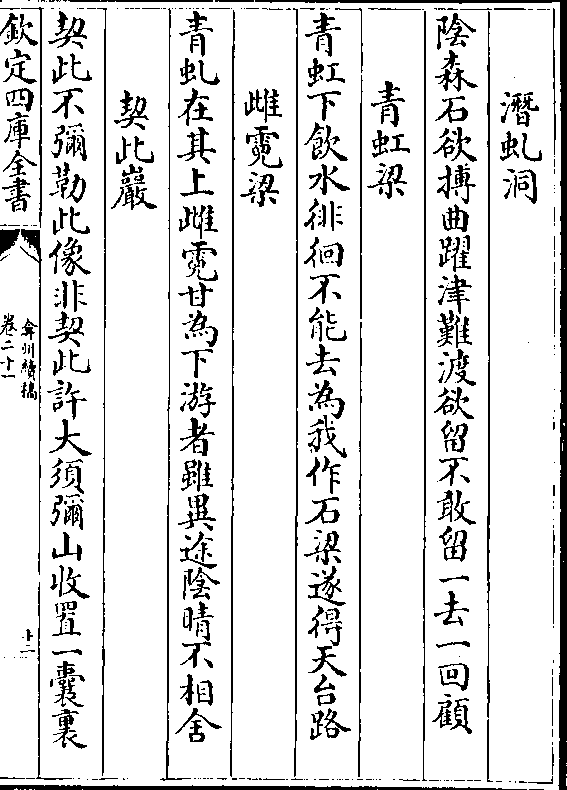 潛虬洞
陰森石欲搏曲躍津難渡欲留不敢留一去一回顧
青虹梁
青虹下飲水徘徊不能去為我作石梁遂得天台路
雌霓梁
青虬在其上雌霓甘為下游者雖異途陰晴不相舍
契此巖
契此不彌勒此像非契此許大須彌山收置一囊裏
欽定四庫全書
弇州續稿
卷二十一
十二